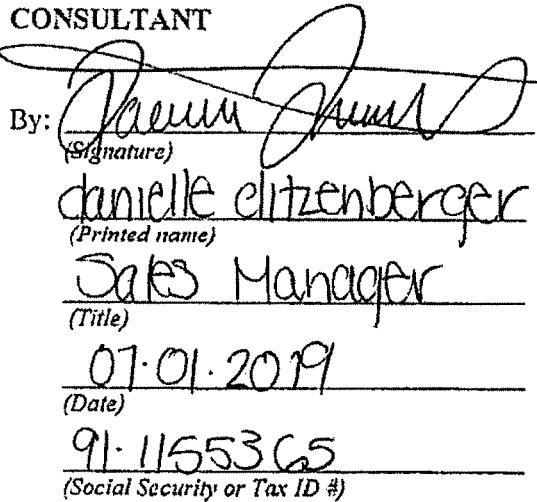 CONSULTANT
By:
(Signature)
danielle elitzenberger
(Printed name)
Sales Manager
(Title)
07.01.2019
(Date)
91-1155365
(Social Security or Tax ID #)